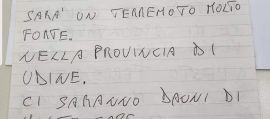 SARA' UN TERREMOTO MOLTO
FORTE.
NELLA PROVINCIA DI
UDINE.
CI SARANNO DANNI DI